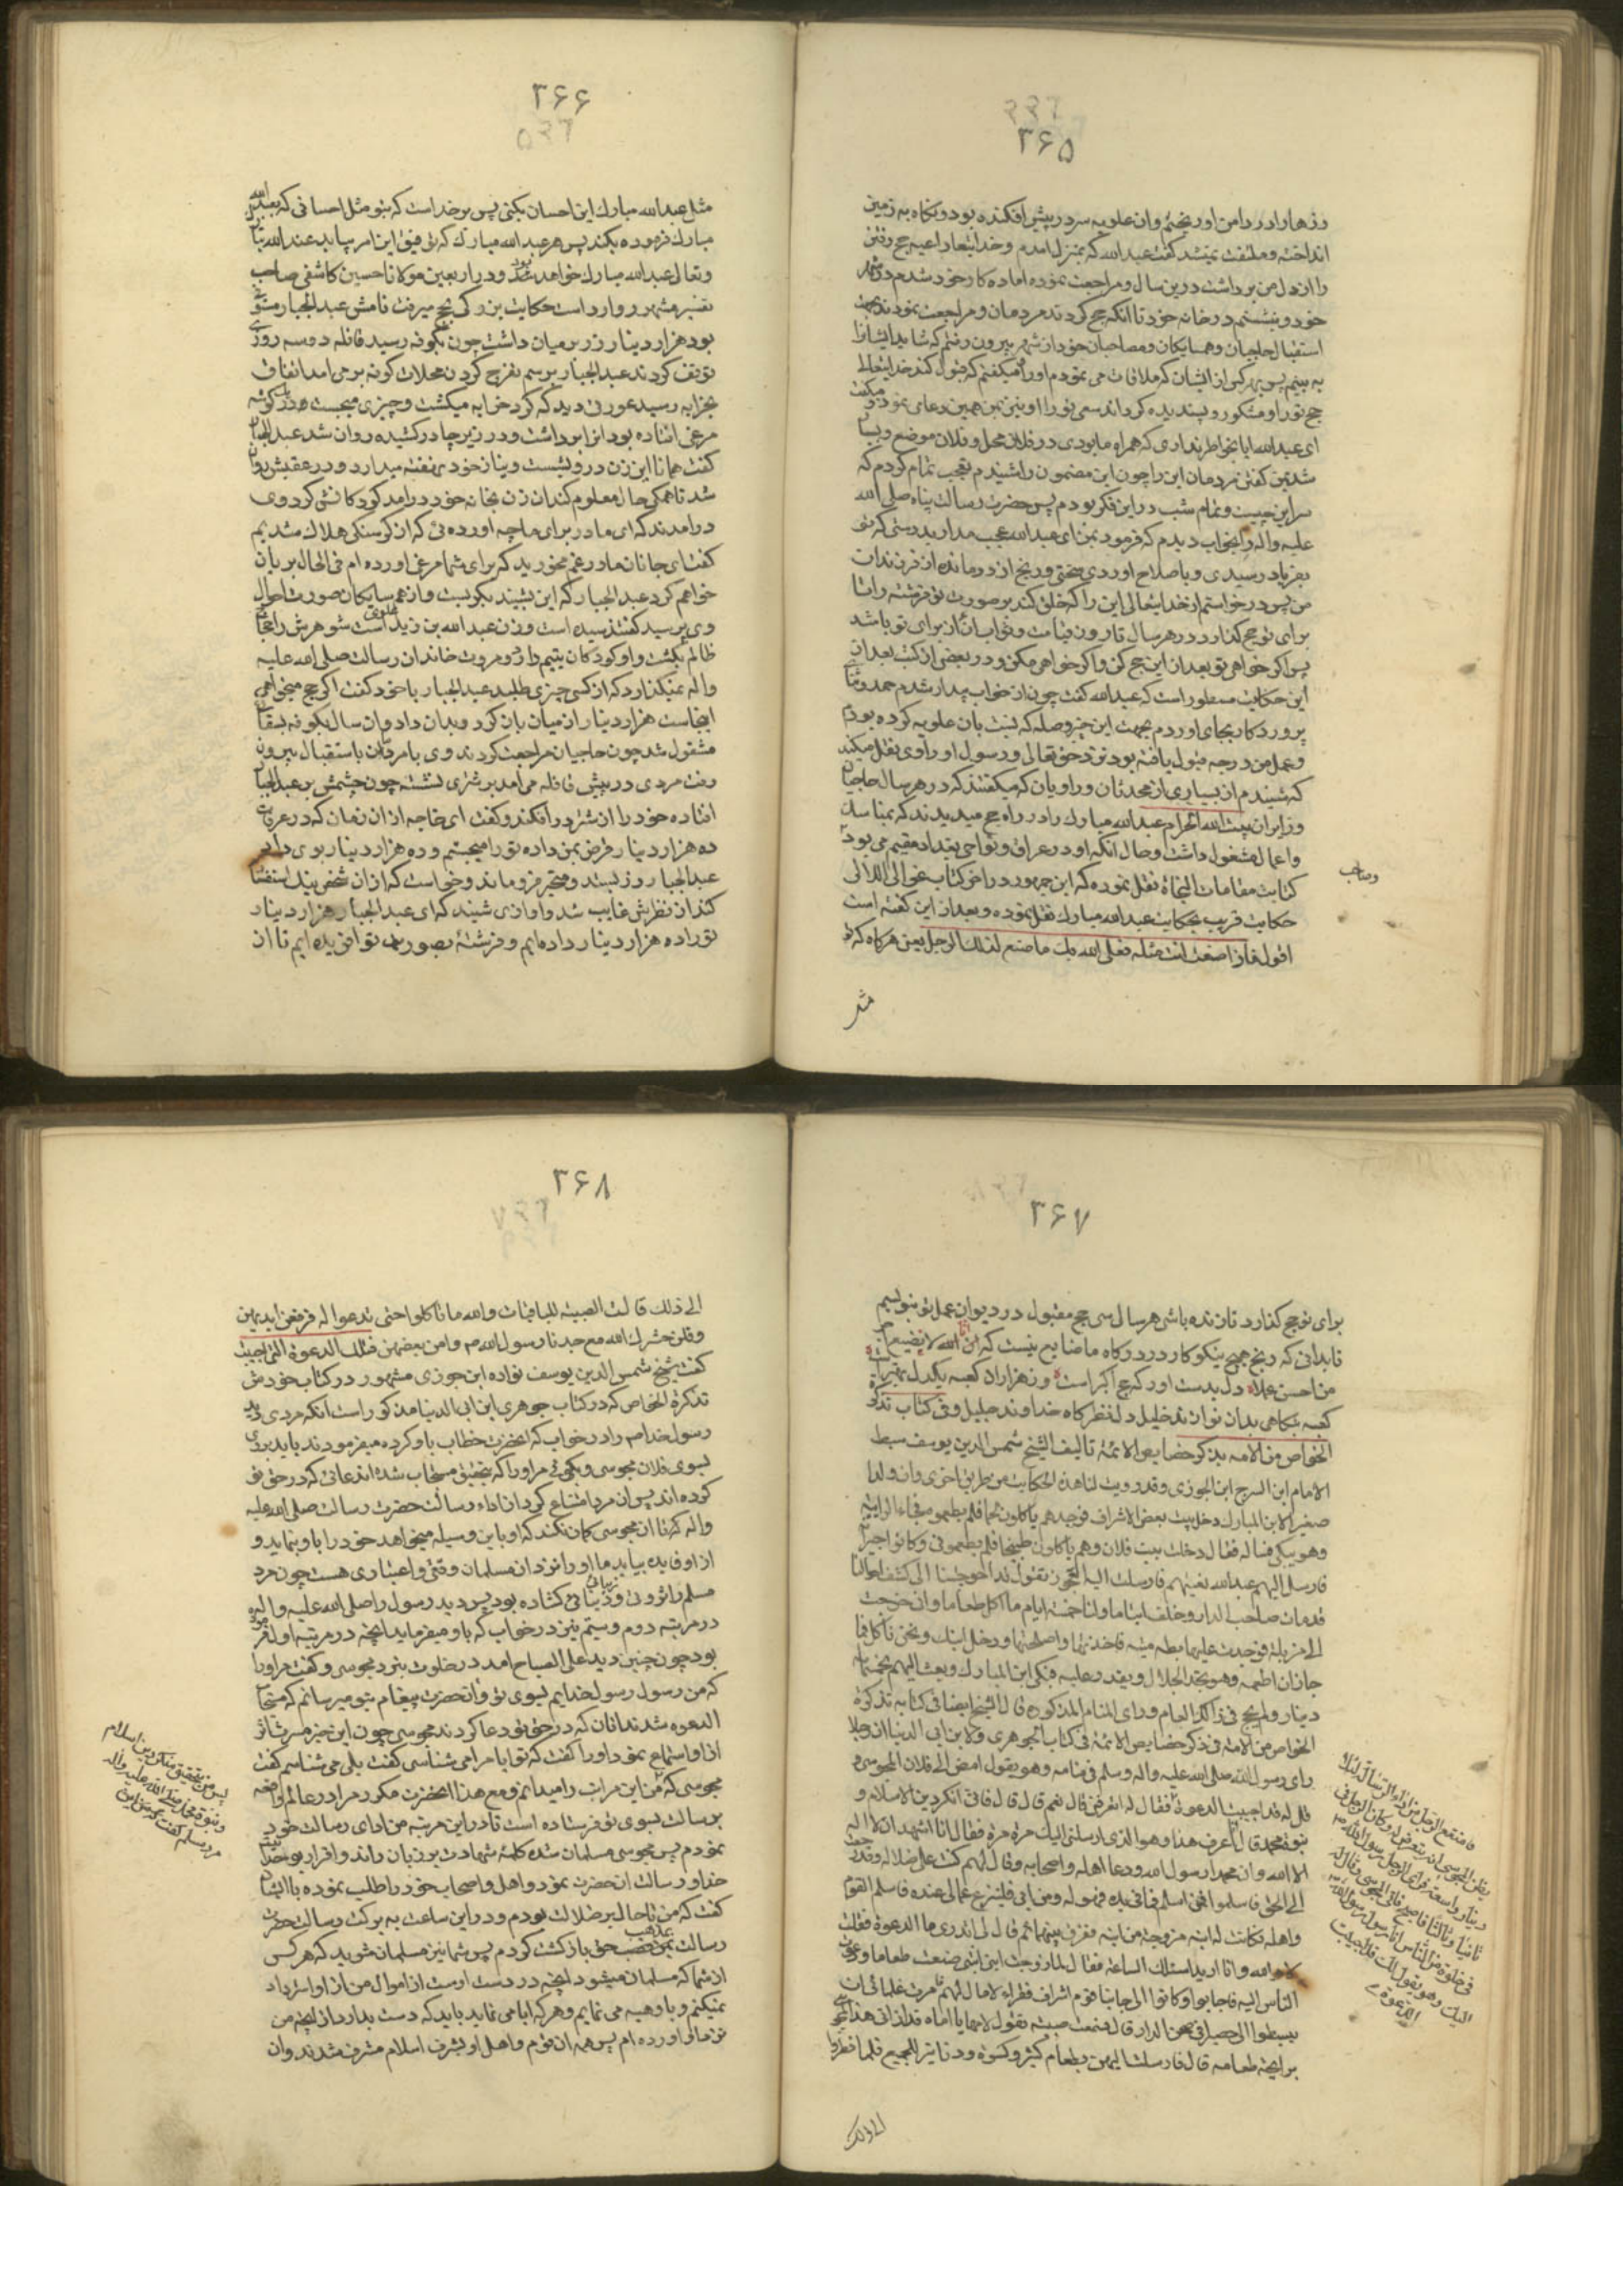 ۳۶۵
وزرها را در دامن او ریختم وان علویه سر در پیش افکنده بود و نگاه به زمین
انداخته و ملتفت نمیشد گفت عبدالله که بمنزل امدم و خدایتعالی داعیه حج رفتن
را از دل من برداشت درین سال و مراجعت نموده اماده کار خود شدم در شهر
خود و نشستم در خانه خود تا انکه حج کردند مردمان و مراجعت نمودند بجهت
استقبال حاجیان و همسایکان و مصاحبان خود از شهر بیرون رفتم که شاید ایشانرا
به بینم پس بهر کس از ایشان که ملاقات می نمودم اورا میکفتم که قبول کند خدایتعالی
حج تو را و مشکور و پسندیده کرداند سعی تو را او نیز بمن همین دعا می نمود و میکفت
ای عبدالله ایا بخاطر نداری که همراه ما بودی در فلان محل و فلان موضع و بسیا
شد بمن کفتن مردمان این را چون این مضمون را شنیدم تعجب تمام کردم که
سر این چیست و تمام شب در این فکر بودم پس حضرت رسالت پناه صلی الله
علیه واله را بخواب دیدم که فرمود بمن ای عبدالله عجب مدار بدرستی که تو
بفریاد رسیدی و باصلاح اوردی سختی و رنج از درمانده از فرزندان
من پس درخواستم از خدایتعالی این را که خلق کند بر صورت تو فرشته را تا
برای تو حج کذارد در هر سال تا روز قیامت و ثواب ان از برای تو باشد
پس اکر خواهی تو بعد از این حج کن و اکر خواهی مکن و در بعضی از کتب بعد از
این حکایت مسطور است که عبدالله کفت چون از خواب بیدار شدم حمد و ثنا
پروردکار بجای اوردم بجهت این چیز و صله که نسبت بان علویه کرده بودم
و عمل من درجه قبول یافته بود نزد حق تعالی و رسول او راوی نقل میکند
که شنیدم از بسیاری از محدثان و راویان که میکفتند که در هر سال حاجیا
و زایران بیت الله الحرام عبدالله مبارک را در راه حج میدیدند که بمناسک
و اعمال مشغول داشت و حال انکه او در عراق و نواحی بغداد مقیم می بود
کتابت مقامات النجاة نقل نموده که ابن جمهور در اخر کتاب غوالی اللالی
حکایت قریب بحکایت عبدالله مبارک نقل نموده و بعد از این کفته است
اقول فان اصنعت انت مثله فعلی الله بک ما صنع لذلک الرجل یعنی هرکاه که تو
وصاحب
مثل
۳۶۶
مثل عبدالله مبارک این احسان بکنی پس بر خداست که بتو مثل احسانی که بعبدالله
مبارک فرموده بکند پس هر عبدالله مبارک که توفیق این امر بیابد عند الله تبا
و تعالی عبدالله مبارک خواهد بود و در اربعین مولانا حسین کاشفی صاحب
تفسیر مشهور وارد است حکایت بزرکی بحج میرفت نامش عبدالجبار مستوفی
بود هزار دینار زر بر میان داشت چون بکوفه رسید قافله دو سه روز
توقف کردند عبدالجبار برسم تفرج کردن محلات کوفه بر می امد اتفاقا
بخرابه رسید عورتی دید که کرد خرابه میکشت و چیزی میجست و در کوشه
مرغی افتاده بود انرا برداشت و در زیر چادر کشیده روان شد عبدالجبا
کفت همانا این زن درویشست و نیاز خود نهفته میدارد در عقبش روان
شد تا همکی حال معلوم کند ان زن بخانه خود درامد کودکانش کرد وی
درامدند که ای مادر برای ما چه اورده ئی که از کرسنکی هلاک شدیم
کفت ای جانان مادر غم مخورید که برای شما مرغی اورده ام فی الحال بریان
خواهم کرد عبدالجبار که این بشنید بکریست و از همسایکان صورت احوال
وی پرسید کفتند سیده است و زن عبدالله بن زید علوی است شوهرش را حجاج
ظالم بکشت و او کودکان یتیم دارد و مروت خاندان رسالت صلی الله علیه
واله نمیکذارد که از کسی چیزی طلبد عبدالجبار با خود کفت اکر حج میخواهی
اینجاست هزار دینار از میان بان کرد و بدان داد و ان سال بکوفه بسقا
مشغول شد چون حاجیان مراجعت کردند وی با مردمان باستقبال بیرون
رفت مردی در پیش قافله می امد بر شتری نشسته چون چشمش بر عبدالجبا
افتاده خود را از شتر در افکند و کفت ای خواجه از ان زمان که در عرفات
ده هزار دینار قرض بمن داده تو را میجستم و ده هزار دینار بوی داد
عبدالجبار زر بستد و متحیر فرو ماند و خواست که از ان شخص نیک استفسا
کند از نظرش غایب شد و اوازی شنید که ای عبدالجبار هزار دینار
تو را ده هزار دینار داده ایم و فرشتهٔ بصورت تو افریده ایم تا از
۳۶۷
برای تو حج کذارد تا زنده باشی هر سال سی حج مقبول در دیوان عمل تو بنویسیم
تا بدانی که رنج هیچ نیکوکار در درکاه ما ضایع نیست که انا لا نضیع اجر
من احسن عملا دل بدست اور که حج اکبر است وز هزاران کعبه یکدل بهتر است
الخواص من الامه بذکر خصایص الائمة تالیف الشیخ شمس الدین یوسف سبط
الامام ابن الفرج ابن الجوزی وقد رویت لنا هذه الحکایت من طریق اخری وان ولدا
صغیرا لابن المبارک دخل بیت بعض الاشراف فوجدهم یاکلون لحما فلم یطعموه فجاء الی ابیه
وهو یبکی فساله فقال دخلت بیت فلان وهم یاکلون طبیخا فلم یطعمونی وکانوا جیرا
فارسل الیهم عبدالله یعتبهم فارسلت الیه العجوز تقول قد احوجتنا الی کشف احوالنا
قد مات صاحب الدار وخلف ایتاما ولنا خمسة ایام ما اکل طعاما وان خرجت
الی مزبلة فوجدت علیها بطه میته فاخذتها واصلحتها ودخل ابنک ونحن ناکل فما
جاز ان اطعمه وهو یجد الحلال ویقدر علیه فبکی ابن المبارک وبعث الیهم بخمسمائه
دینار ولم یحج فی ذاک العام ورای المنام المذکوره قال الشیخ ایضا فی کتابه تذکرة
الخواص من الامة فی ذکر خصایص الائمة فی کتاب الجوهری ولابن ابی الدنیا ان رجلا
رای رسول الله صلی الله علیه واله وسلم فی منامه وهو یقول امض الی فلان المجوسی و
قل له قد اجیبت الدعوة فقال له اتعرفنی قال نعم قال فانی انکر دین الاسلام و
نبوة محمد قال انا اعرف هذا وهو الذی ارسلنی الیک مرة مرة فقال انا اشهد ان لا اله
الا الله وان محمدا رسول الله ودعا اهله واصحابه وقال لهم کنت علی ضلاله وقد رجعت
الی الحق فاسلموا فمن اسلم فما فی یده فهو له ومن ابی فلینزع عما لی عنده فاسلم القوم
واهله وکانت له ابنه مزوجة من ابنه ففرق بینهما ثم قال لی اتدری ما الدعوة فقلت
لا والله وانا ارید اسئلک الساعة فقال لما زوجت ابنتی صنعت طعاما ودعوت
الناس الیه فاجابوا وکانوا الی جانبنا قوم اشراف فقراء لا مال لهم فامرت غلمانی ان
یبسطوا الی حصیر فی صحن الدار قال فسمعت صبیة تقول لامها یا اماه قد اذانی هذا المجوسی
برایحة طعامه قال فارسلت الیهن بطعام کثیر وکسوة ودنانیر للجمیع فلما نظروا
الی ذلک
فامتنع الرجل من اداء الرسالة لئلا
یظن المجوسی انه یتعرض له وکان الرجل فی
دنیا واسعة فرای الرجل رسول الله
ثانیا وثالثا فاصبح فاتی المجوسی وقال له
فی خلوة من الناس انا رسول رسول الله
الیک وهو یقول لک قد اجیبت
الدعوة
۳۶۸
الی ذلک قالت الصبیة للباقیات والله ما ناکلوا حتی تدعوا له فرفعن ایدیهن
وقلن حشرک الله مع جدنا رسول الله وامن بعضهن فتلک الدعوة التی اجیبت
کفت شیخ شمس الدین یوسف نواده ابن جوزی مشهور در کتاب خودش
تذکرة الخواص که در کتاب جوهری ابن ابی الدنیا مذکور است انکه مردی دید
رسول خدا را در خواب که انحضرت خطاب باو کرده میفرمودند باید بروی
بسوی فلان مجوسی و بکوئی مر او را که بتحقیق مستجاب شده اند دعائی که در حق تو
کرده اند پس ان مرد امتناع کرد از اداء رسالت حضرت رسالت صلی الله علیه
واله که تا ان مجوسی کمان نکند که او باین وسیله میخواهد خود را باو بنماید و
از او فایده بیابد ما او را نزد ان مسلمان وقتی و اعتباری هست چون مرد
مسلم را ثروت و دنیائی کشاده بود پس دید رسول را صلی الله علیه واله
در مرتبه دوم و سیم نیز در خواب که باو میفرماید انچه در مرتبه اول فرموده
بود چون چنین دید علی الصباح امد در خلوت بنزد مجوسی و کفت مر او را
که من رسول رسول خدایم بسوی تو و ان حضرت پیغام بتو میرسانم که مستجا
الدعوه شدند انان که در حق تو دعا کردند مجوسی چون این خبر مسرت اثر
از او استماع نمود او را کفت که تو ایا مرا می شناسی کفت بلی می شناسم کفت
مجوسی که من این مراتب را میدانم و مع هذا انحضرت مکرر مرا در عالم واقعه
برسالت بسوی تو فرستاده است تا در این مرتبه من ادای رسالت خود
نمودم پس مجوسی مسلمان شده کلمهٔ شهادت بر زبان راند و اقرار بوحدانیت
خدا و رسالت ان حضرت نمود و اهل و اصحاب خود را طلب نموده با ایشان
کفت که من تا حال بر ضلالت بودم و در این ساعت به برکت رسالت حضرت
رسالت بمذهب حق بازکشت کردم پس شما نیز مسلمان شوید که هر کس
از شما که مسلمان میشود انچه در دست اوست از اموال من از او استرداد
نمیکنم و باو هبه می نمایم و هر که ابا می نماید باید که دست بدارد از انچه من
نزد مالی اورده ام پس همه ان قوم و اهل او بشرف اسلام مشرف شدند وان
پس من بتحقیق منکر دین اسلام
و نبوة محمد صلی الله علیه واله
مرد مسلم کفت که من این